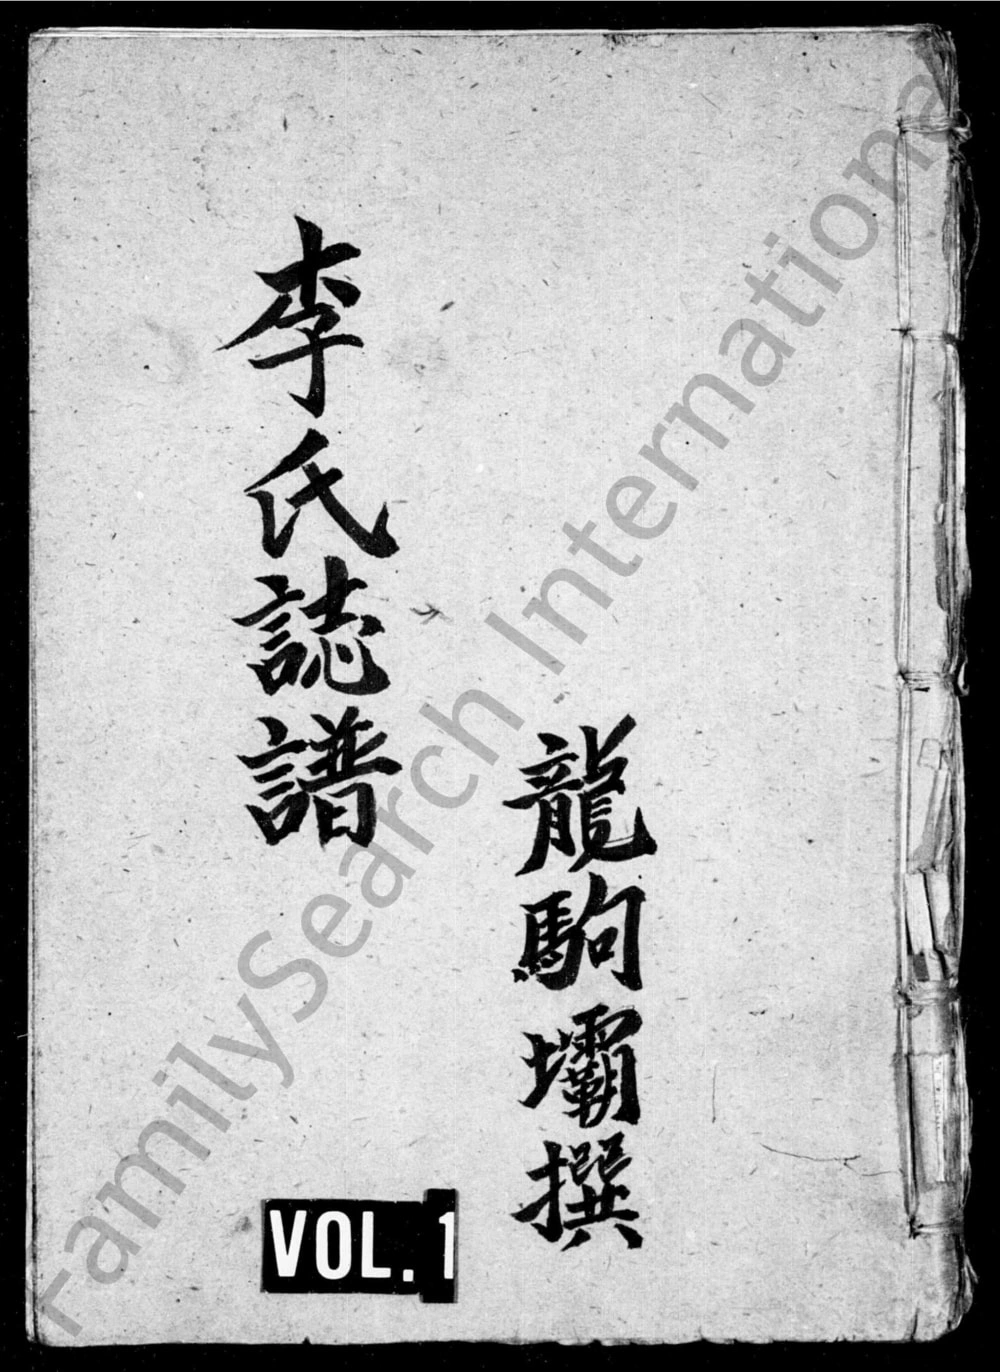 龍駒壩撰
李氏誌譜
VOL. 1
FamilySearch International